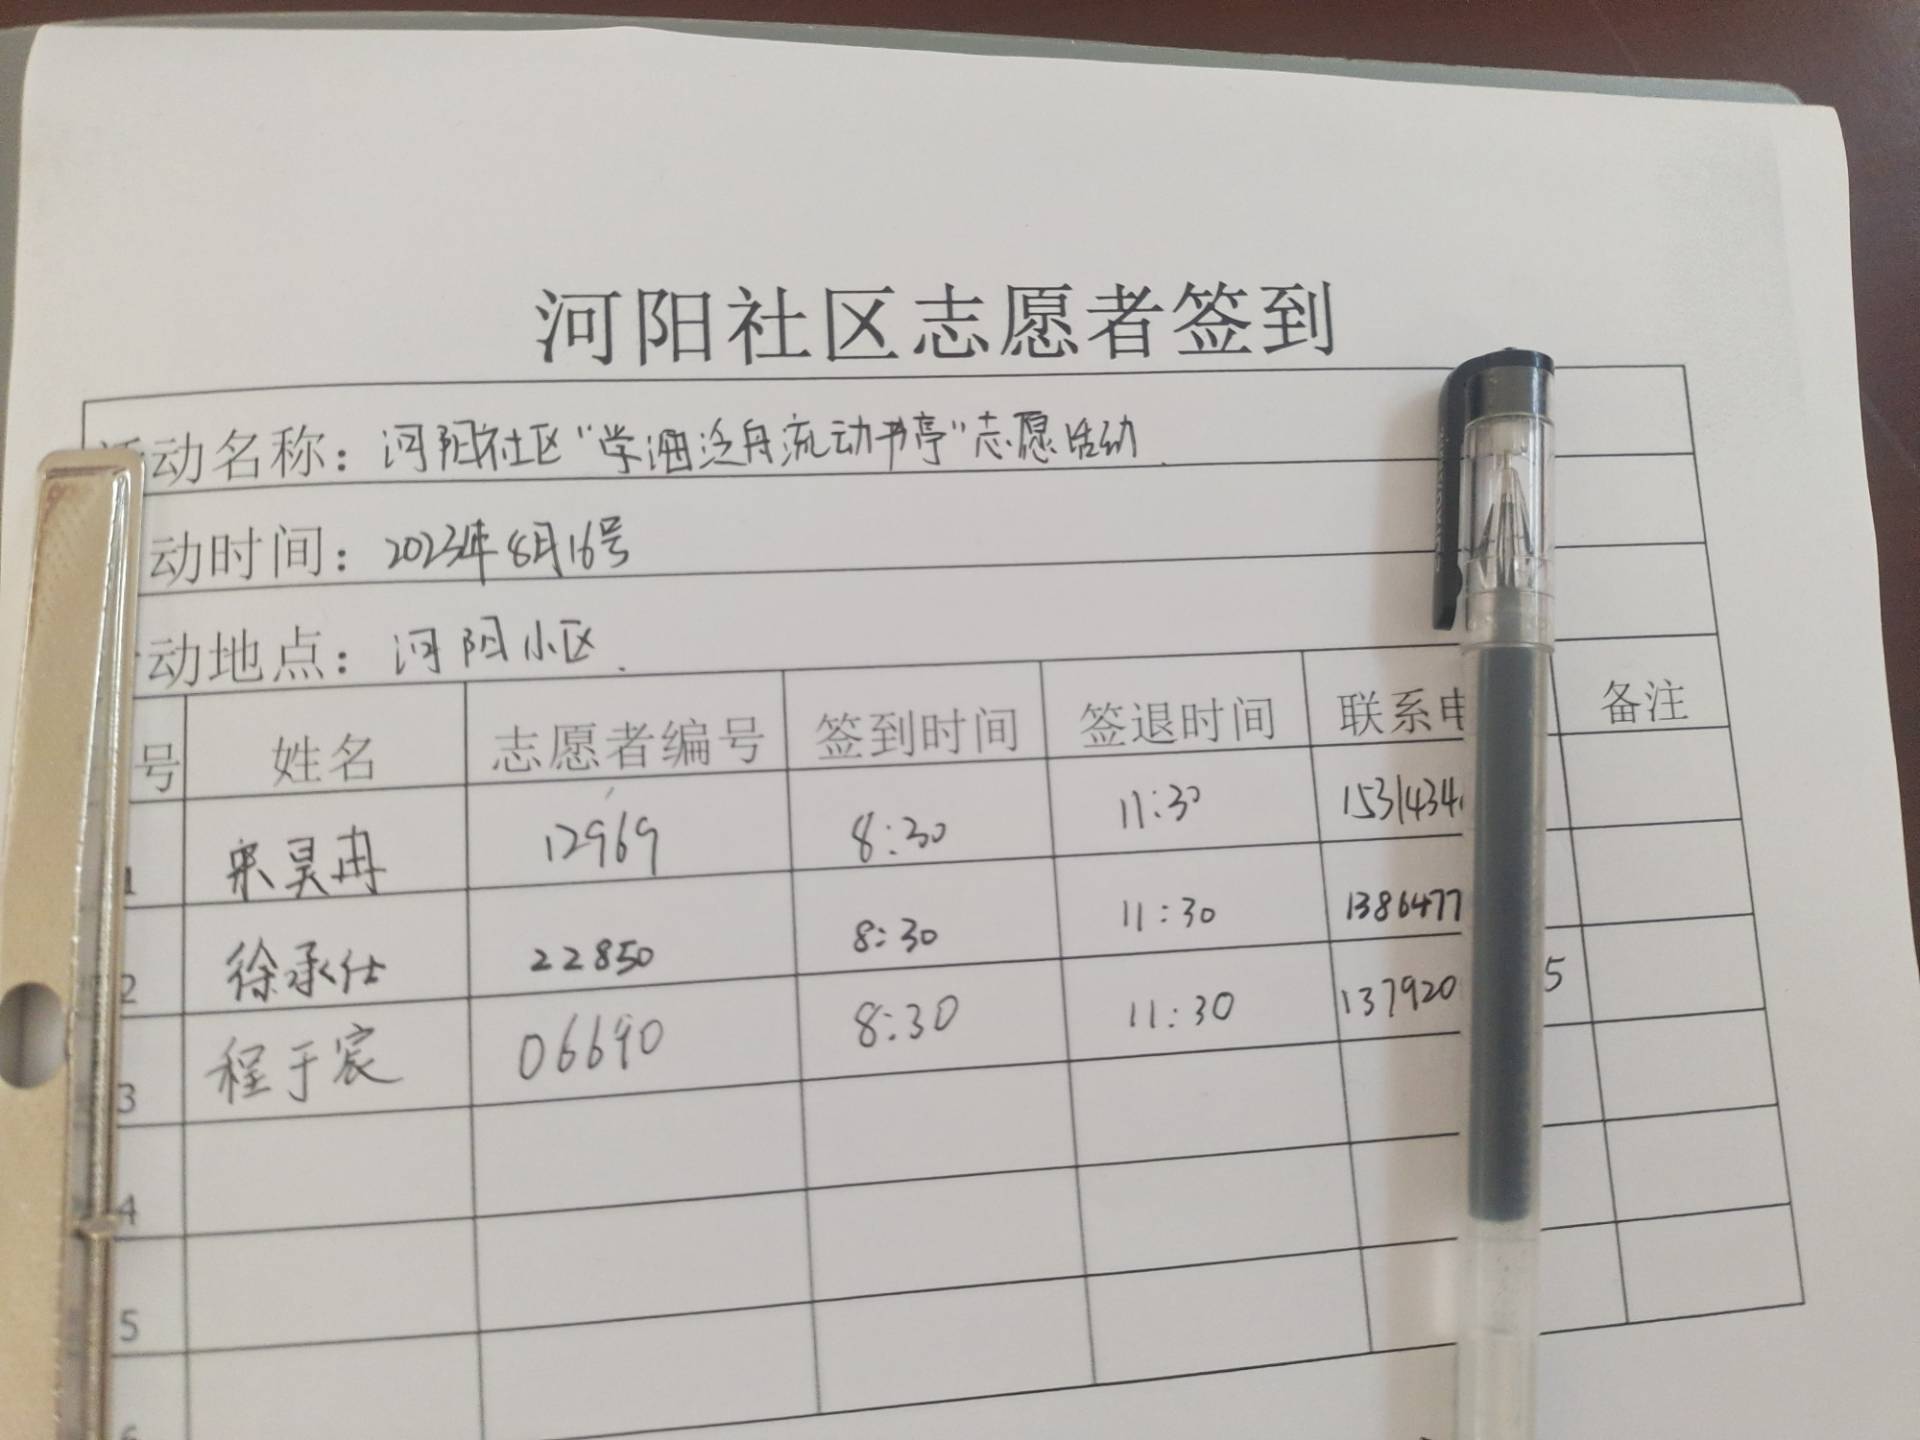 河阳社区志愿者签到
活动名称：河阳社区“学海泛舟流动书亭”志愿活动
动时间：2023年8月16号
动地点：河阳小区.
号 姓名 志愿者编号 签到时间 签退时间 联系电 备注
1 宋昊冉 12969 8:30 11:30 1531434
2 徐承仕 22850 8:30 11:30 1386477
3 程于宸 06690 8:30 11:30 137920 5
4
5
6